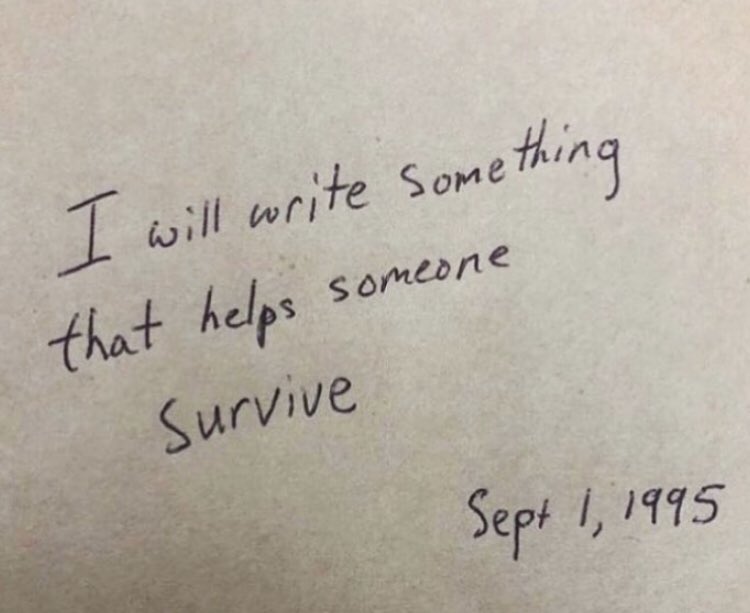 I will write something
that helps someone
survive
Sept 1, 1995